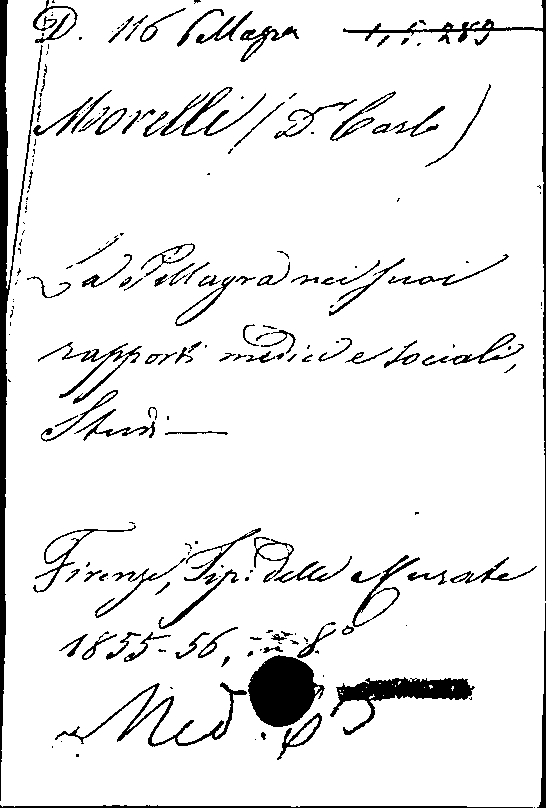 D. 116 Pellagra 1, 5. 289
Morelli (Dr. Carlo)
La Pellagra nei suoi
rapporti medici e sociali,
Studi —
Firenze, Tip: delle Murate
1855-56, in 8.º
Med.